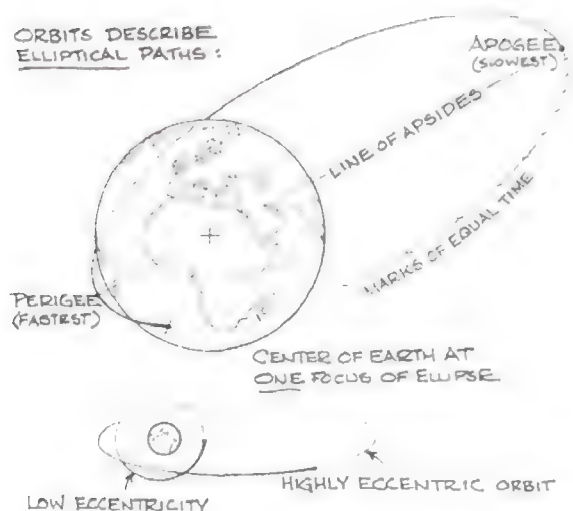 ORBITS DESCRIBE
ELLIPTICAL PATHS :
APOGEE
(SLOWEST)
LINE OF APSIDES
MARKS OF EQUAL TIME
PERIGEE
(FASTEST)
CENTER OF EARTH AT
ONE FOCUS OF ELLIPSE
LOW ECCENTRICITY
HIGHLY ECCENTRIC ORBIT